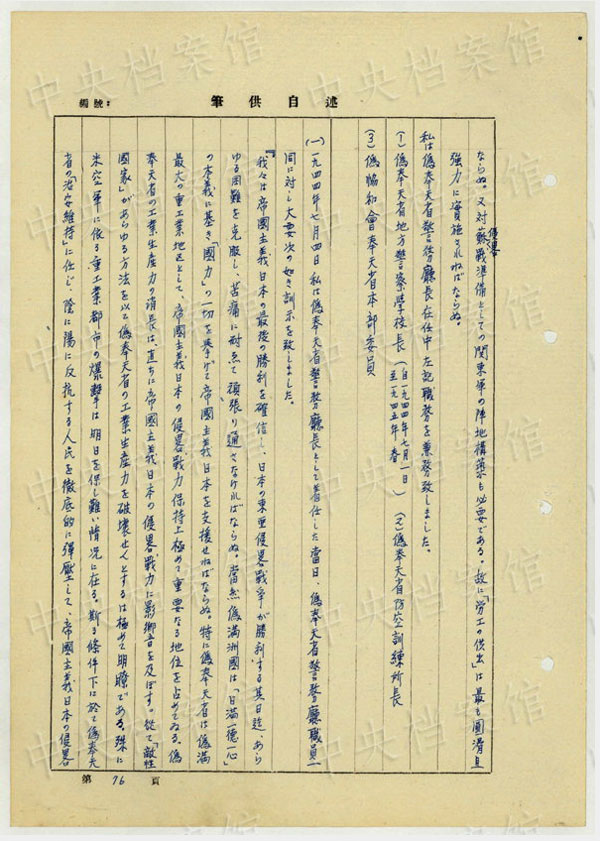 編號：
筆供自述
ならぬ。又対蘇侵畧戰準備としての関東軍の陣地構築も必要である。故に「労工の供出」は最も圓滑且
強力に實施されねばならぬ。
私は偽奉天省警務廳長在任中左記職務を兼務致しました。
(1) 偽奉天省地方警察學校長（自一九四四年七月一日至一九四五年春）(2) 偽奉天省防空訓練所長
(3) 偽協和會奉天省本部委員
(一) 一九四四年七月四日私は偽奉天省警務廳長として着任した當日、偽奉天省警務廳職員一
同に対し大要次の如き訓示を致しました。
『我々は帝國主義日本の最後の勝利を確信し、日本の東亜侵畧戰爭が勝利する其日迄、あら
ゆる困難を克服し、苦痛に耐えて頑張り通さなければならぬ。當然偽満洲國は「日満一徳一心」
の本義に基き「國力」の一切を挙げて帝國主義日本を支援せねばならぬ。特に偽奉天省は偽満
最大の重工業地区として、帝國主義日本の侵畧戰力保持上極めて重要なる地位を占めてゐる。偽
奉天省の工業生産力の消長は、直ちに帝國主義日本の侵畧戰力に影響を及ぼす。從て「敵性
國家」があらゆる方法を以て偽奉天省の工業生産力を破壊せんとするは極めて明瞭である。殊に
米空軍に依る重工業都市の爆撃は明日を保し難い情況に在る。斯る條件下に於て偽奉天
省の「治安維持」に任じ、陰に陽に反抗する人民を徹底的に弾壓して、帝國主義日本の侵畧
第 76 頁
中央档案馆